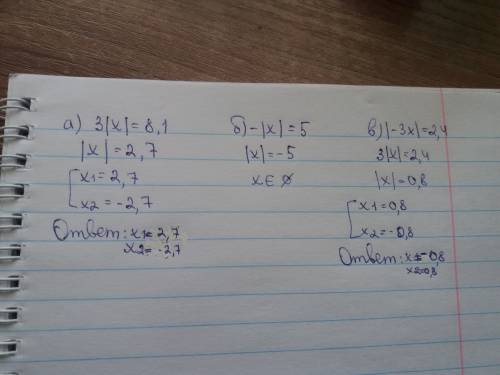 а) 3|x| = 8,1
|x| = 2,7
x1 = 2,7
x2 = -2,7
Ответ: x1= 2,7
x2= -2,7
б) -|x| = 5
|x| = -5
x ∈ ∅
в) |-3x| = 2,4
3|x| = 2,4
|x| = 0,8
x1 = 0,8
x2 = -0,8
Ответ: